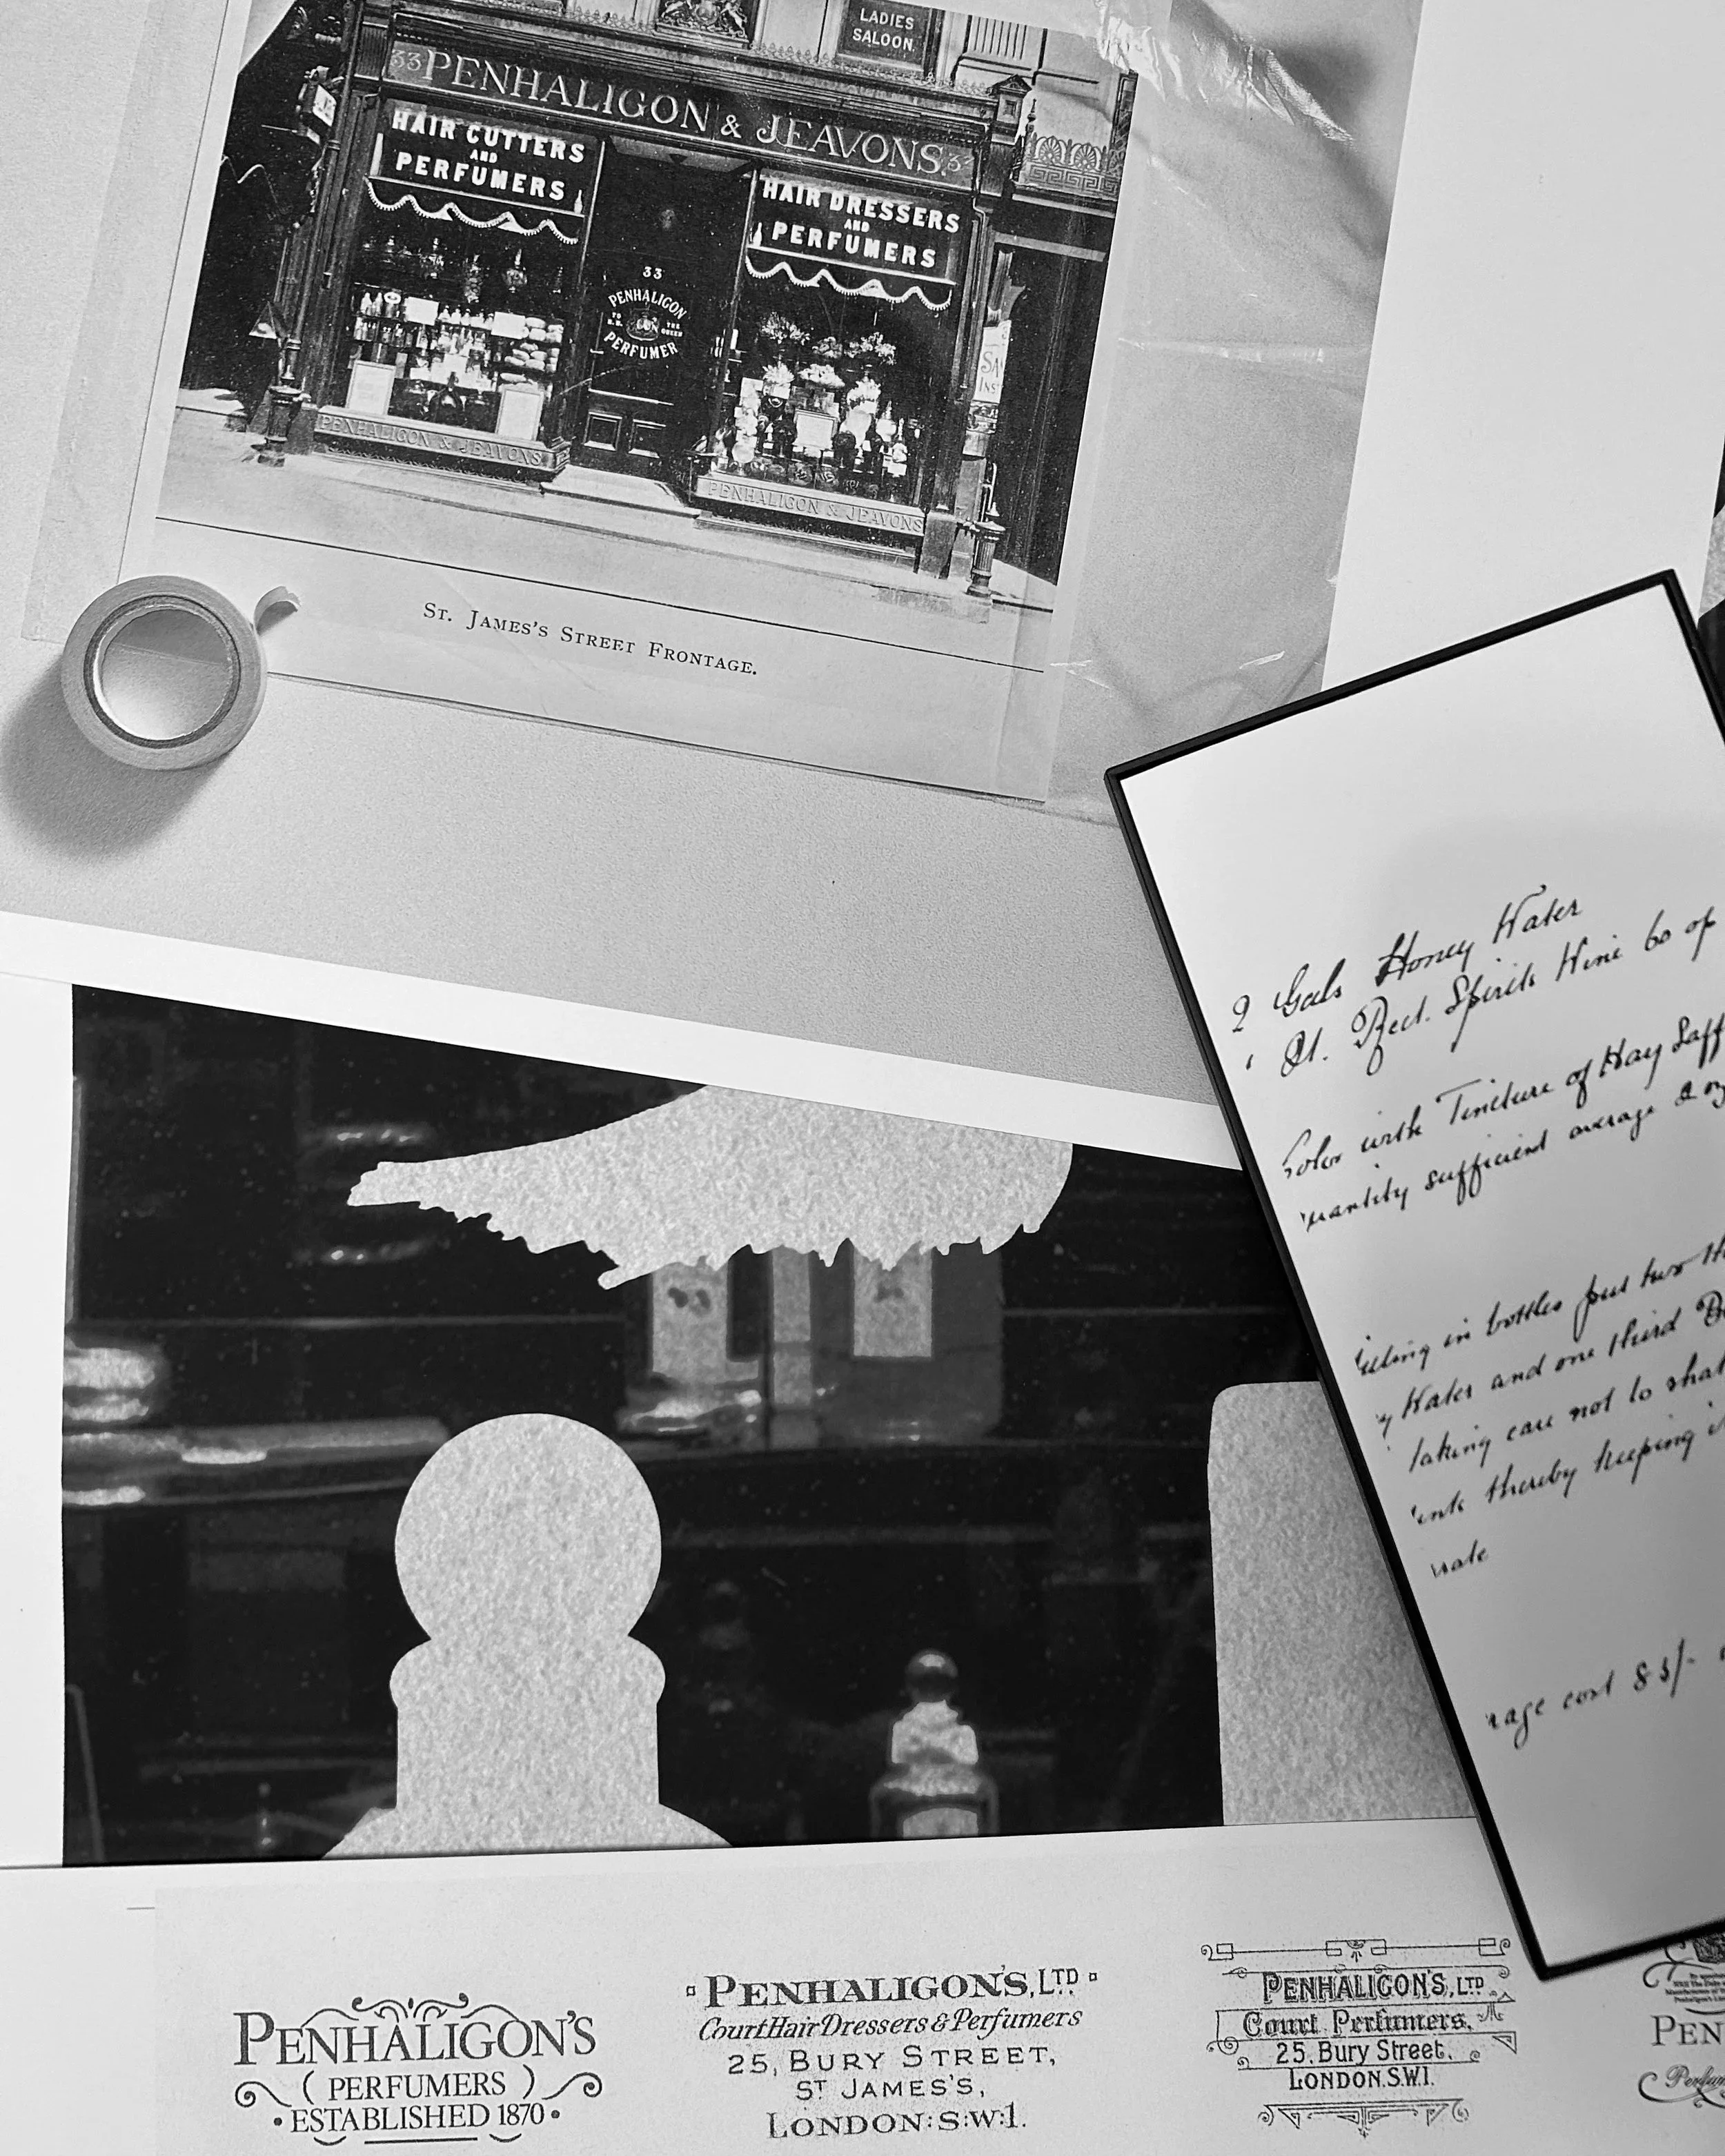 LADIES
SALOON.
33 PENHALIGON & JEAVONS. 33
HAIR CUTTERS
AND
PERFUMERS
HAIR DRESSERS
AND
PERFUMERS
33
PENHALIGON
TO H.M. THE QUEEN
PERFUMER
PENHALIGON & JEAVONS
PENHALIGON & JEAVONS
ST. JAMES'S STREET FRONTAGE.
2 Gals Honey Water
Rect. Spirits Wine 60 op
with Tincture of Hay Saff
sufficient average
in bottles put two
Water and one third
taking care not to
thereby keeping
cost 83/-
PENHALIGON'S
( PERFUMERS )
• ESTABLISHED 1870 •
PENHALIGON'S, LTD.
Court Hair Dressers & Perfumers
25, BURY STREET,
ST JAMES'S,
LONDON: S:W:1.
PENHALIGON'S, LTD.
Court Perfumers,
25, Bury Street.
LONDON. S.W.1.
PEN